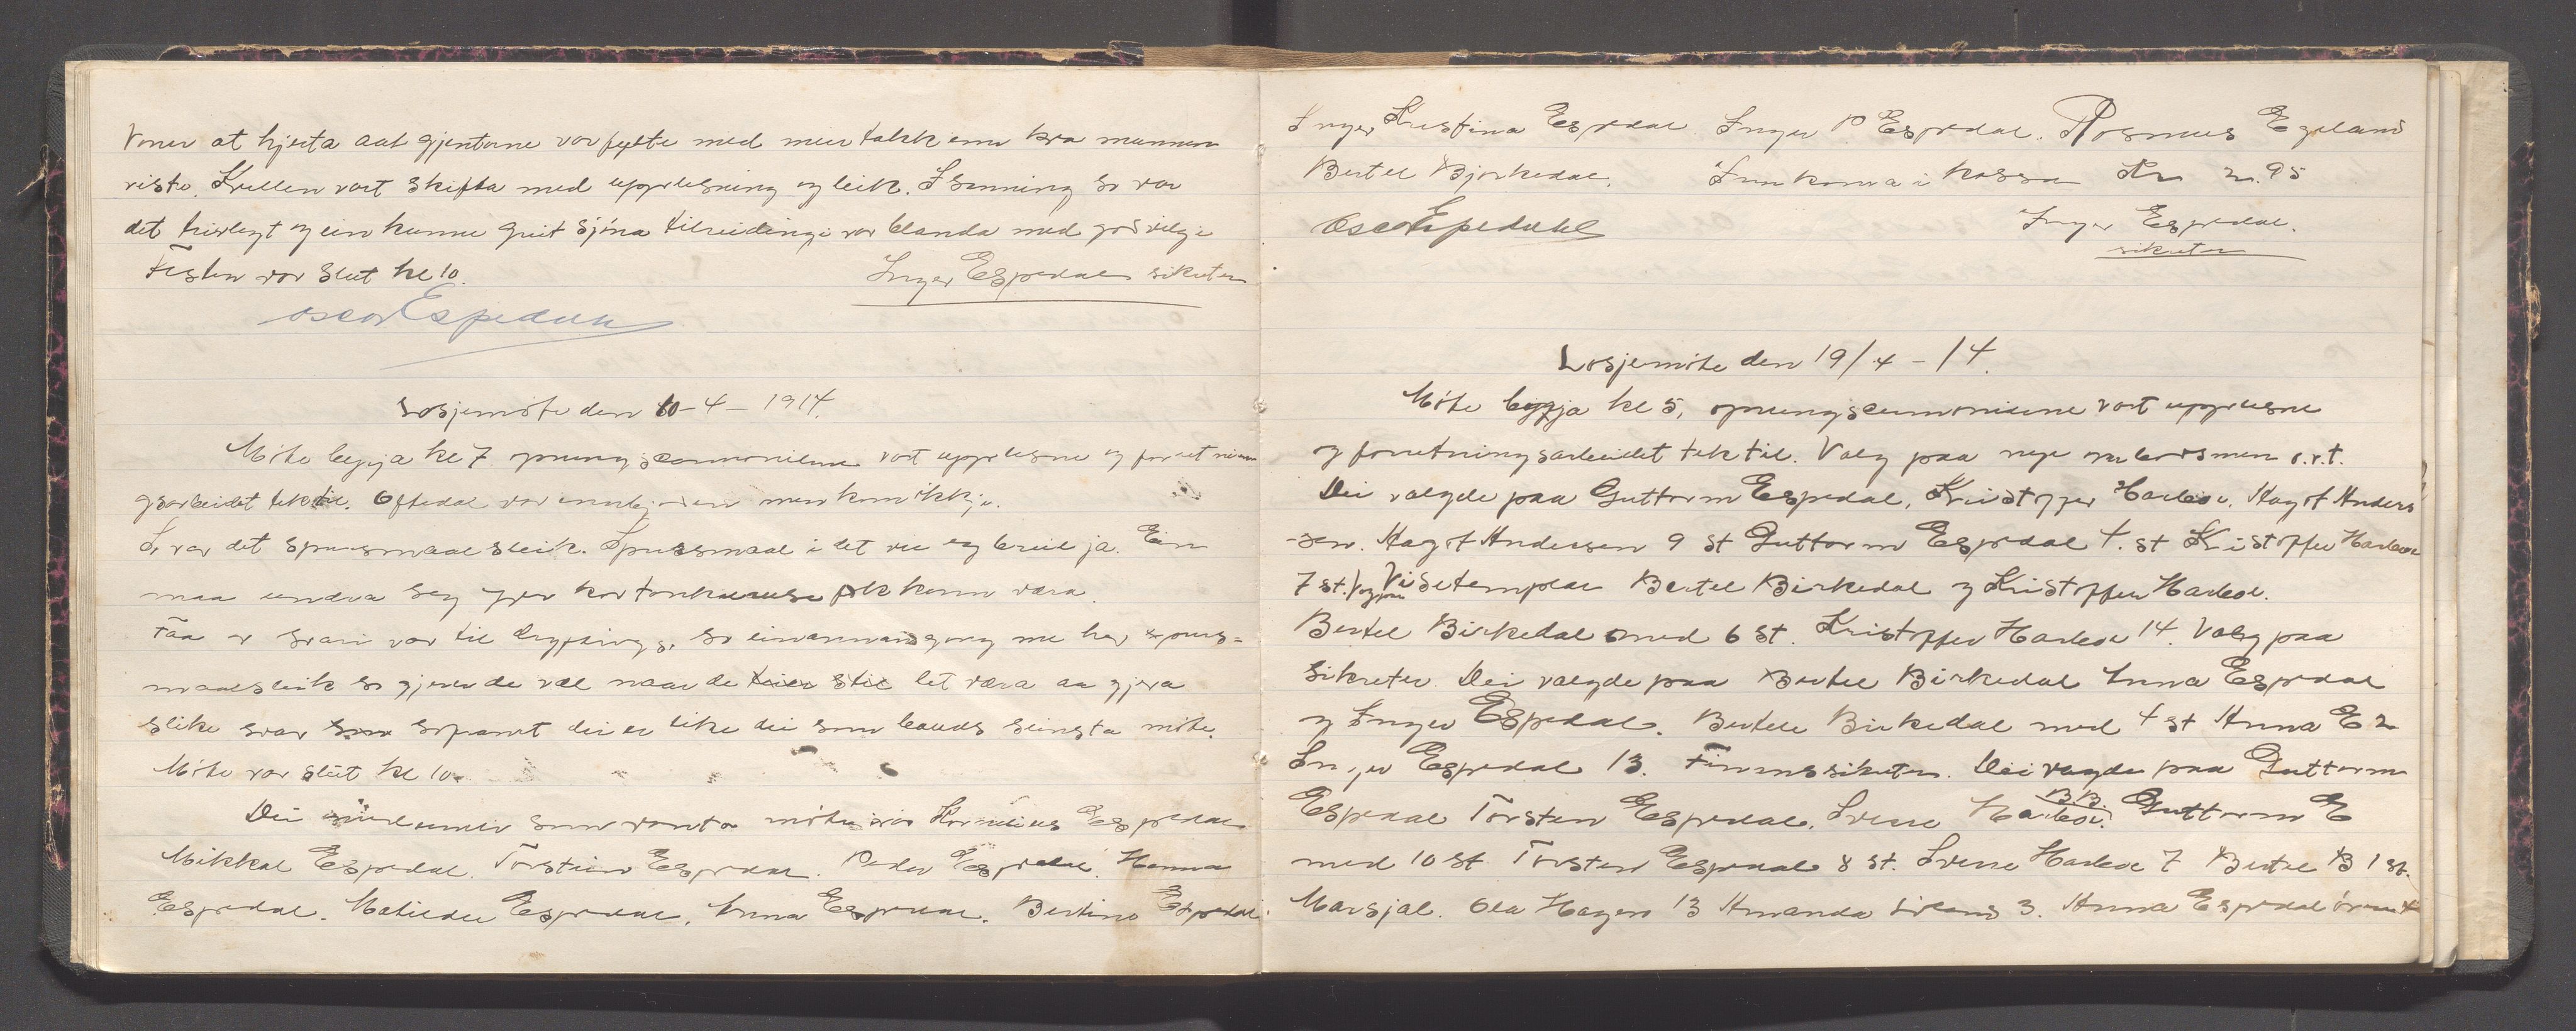 Vones at hjerta aat gjentorne var fyllte med meir takk enn kva munnen
viste. Kvellen vart skifta med upplesning og leik. I sanning so var
det trivlegt og ein kunne greit sjóna tilreidingi var blanda med godvilje
Festen var slut kl 10.
Inger Espedal sikreter
Oscar Espedahl
Losjemöte den 10-4-1914.
Möte byrja kl 7 opningsceremonierne vart upplesne og forretnin
gsarbeidet tok til. Oftedal var men kom ikkje.
So var det spursmaalsleik. Spursmaal i det vie og breie ja. Ein
maa undra seg yver kor tankelause folk kann vera.
Faa av svari var til uppbygging, so ein annan gong me har spurs-
maalsleik so gjer de vel naar de let vera aa gjeva
slike svar sopamt dei er like dei som hauds seinsta möte.
Möte var slut kl 10.
Dei medlemer som vanta möte var Kornelius Espedal
Mikkal Espedal. Torstein Espedal. Peder Espedal. Hanna
Espedal. Matilde Espedal. Anna Espedal. Bertine Espedal.
Inger Kristina Espedal. Inger P Espedal. Rasmus Egeland
Bertel Bjorkedal. Innkoma i kassa Kr 2.95
Oscar Espedahl
Inger Espedal.
sikreter
Losjemöte den 19/4-14.
Möte byrja kl 5, opningsceremonierne vart upplesne
og forretningsarbeidet tok til. Valg paa nye embedsmen o.s.t.
Dei valgde paa Guttorm Espedal, Kristoffer Harboe, Hagof Anders
-sen. Hagof Andersen 9 st Guttorm Espedal 4. st Kristoffer Harboe
7 st. Valg paa Visetemplar Bertel Birkedal og Kristoffer Harboe.
Bertel Birkedal med 6 st. Kristoffer Harboe 14. Valg paa
sikreter. Dei valgde paa Bertel Birkedal Anna Espedal
og Inger Espedal. Bertel Birkedal med 4 st Anna E 2
Inger Espedal 13. Finanssikreter. Dei valgde paa Guttorm
Espedal Torsten Espedal. Sverre Harboe. B.B. Guttorm E
med 10 st Torsten Espedal 8 st. Sverre Harboe 7 Bertel B 1 st.
Marsjal. Ola Hagen 13 Amanda 3. Anna Espedal